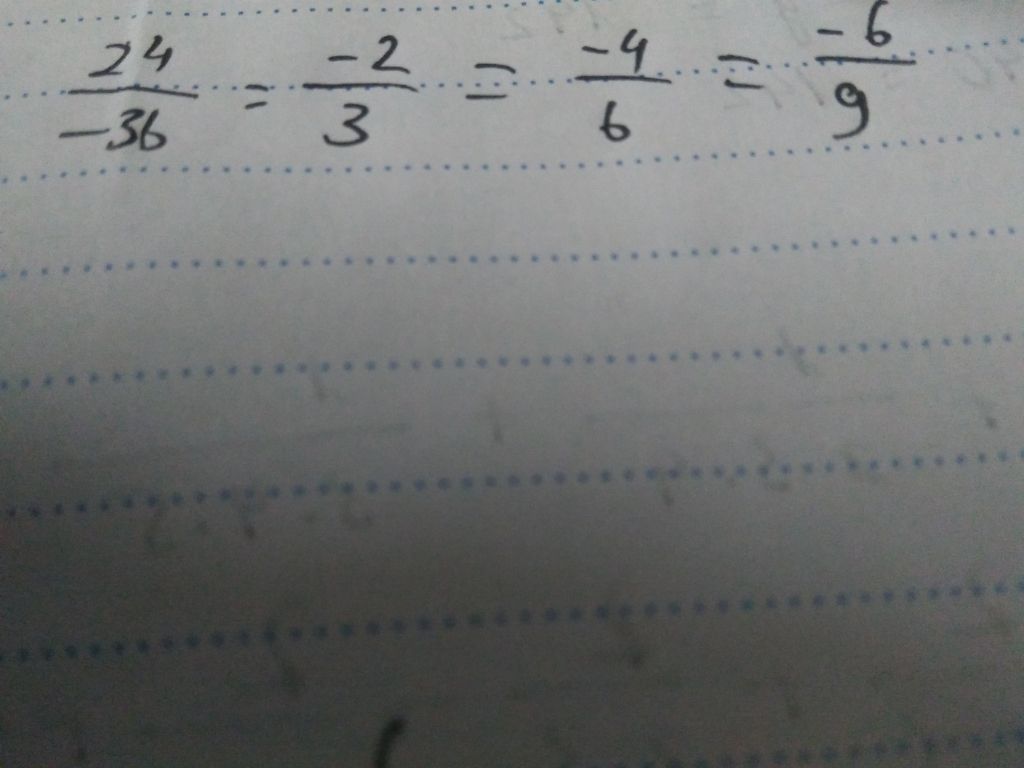 24/-36 = -2/3 = -4/6 = -6/9